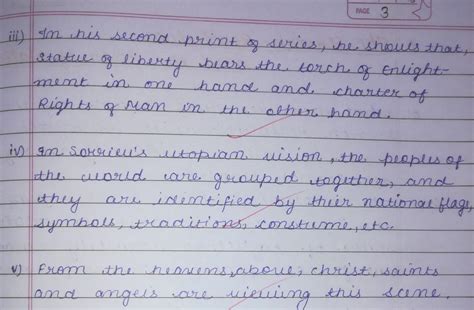 PAGE 3
iii) In his second print of series, he shows that,
statue of liberty bears the torch of Enlight-
ment in one hand and charter of
Rights of Man in the other hand.
iv) In Sorrieu's utopian vision, the peoples of
the world are grouped together, and
they are identified by their national flags,
symbols, traditions, constume, etc.
v) From the heavens, above, christ, saints
and angels are viewing this scene.